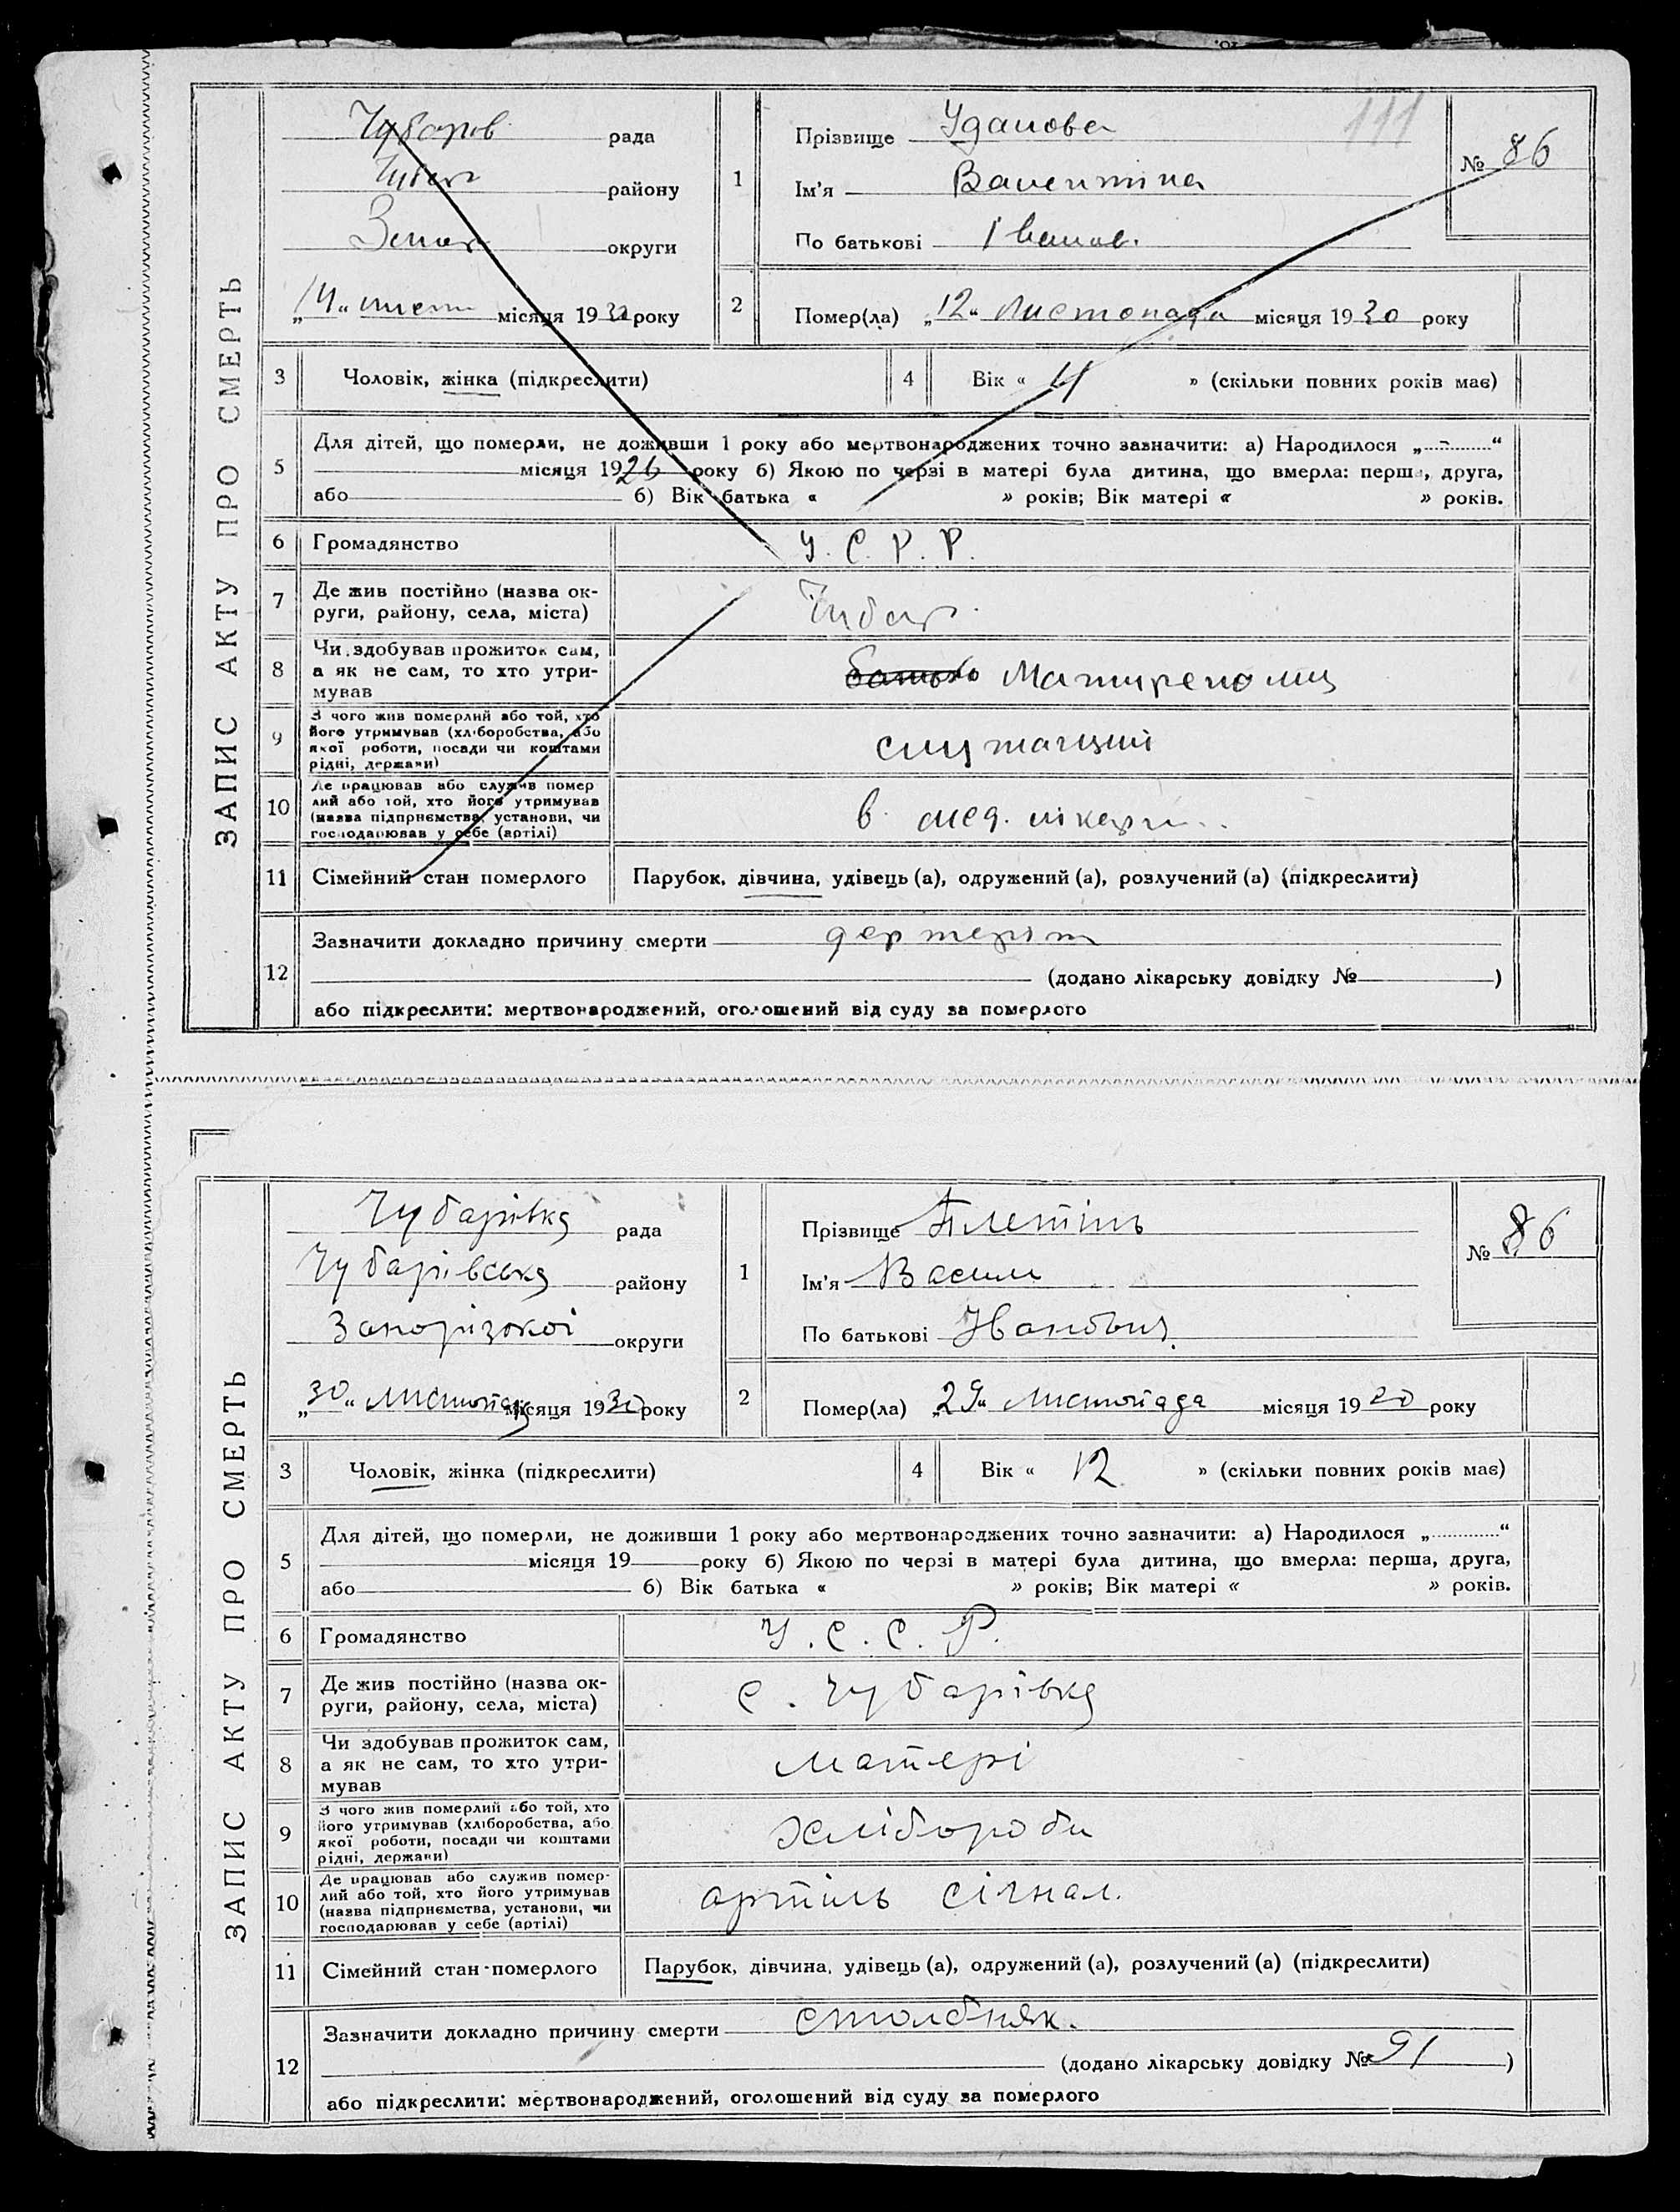 111
ЗАПИС АКТУ ПРО СМЕРТЬ
Чубарів рада
району
Запор округи
„14“ лист місяця 1930 року
1
Прізвище Уданова
Ім'я Валентина
По батькові Іванов.
№ 86
2
Помер(ла) „12“ Листопада місяця 1930 року
3 Чоловік, жінка (підкреслити)
4 Вік « 4 » (скільки повних років має)
5 Для дітей, що померли, не доживши 1 року або мертвонароджених точно зазначити: а) Народилося „ “
місяця 1926 року б) Якою по черзі в матері була дитина, що вмерла: перша, друга,
або б) Вік батька « » років; Вік матері « » років.
6 Громадянство У. С. Р. Р.
7 Де жив постійно (назва ок-
руги, району, села, міста) Чубар.
8 Чи здобував прожиток сам,
а як не сам, то хто утри-
мував батько
9 З чого жив померлий або той, хто
його утримував (хліборобства, або
якої роботи, посади чи коштами
рідні, держави) служащий
10 Де працював або служив помер
лий або той, хто його утримував
(назва підприємства, установи, чи
господарював у себе (артілі) в мед.
11 Сімейний стан померлого Парубок, дівчина, удівець (а), одружений (а), розлучений (а) (підкреслити)
12 Зазначити докладно причину смерти
(додано лікарську довідку № )
або підкреслити: мертвонароджений, оголошений від суду за померлого
ЗАПИС АКТУ ПРО СМЕРТЬ
Чубарівка рада
Чубарівська району
Запорізокої округи
„30“ Листопада місяця 1930 року
1
Прізвище Плетінь
Ім'я Васили
По батькові Иванович.
№ 86
2
Помер(ла) „29“ Листопада місяця 1930 року
3 Чоловік, жінка (підкреслити)
4 Вік « 12 » (скільки повних років має)
5 Для дітей, що померли, не доживши 1 року або мертвонароджених точно зазначити: а) Народилося „ “
місяця 19 року б) Якою по черзі в матері була дитина, що вмерла: перша, друга,
або б) Вік батька « » років; Вік матері « » років.
6 Громадянство У. С. С. Р.
7 Де жив постійно (назва ок-
руги, району, села, міста) с. Чубарівка
8 Чи здобував прожиток сам,
а як не сам, то хто утри-
мував матері
9 З чого жив померлий або той, хто
його утримував (хліборобства, або
якої роботи, посади чи коштами
рідні, держави) хлібороби
10 Де працював або служив помер-
лий або той, хто його утримував
(назва підприємства, установи, чи
господарював у себе (артілі) артіль сігнал.
11 Сімейний стан померлого Парубок, дівчина, удівець (а), одружений (а), розлучений (а) (підкреслити)
12 Зазначити докладно причину смерти столбняк.
(додано лікарську довідку № 91 )
або підкреслити: мертвонароджений, оголошений від суду за померлого